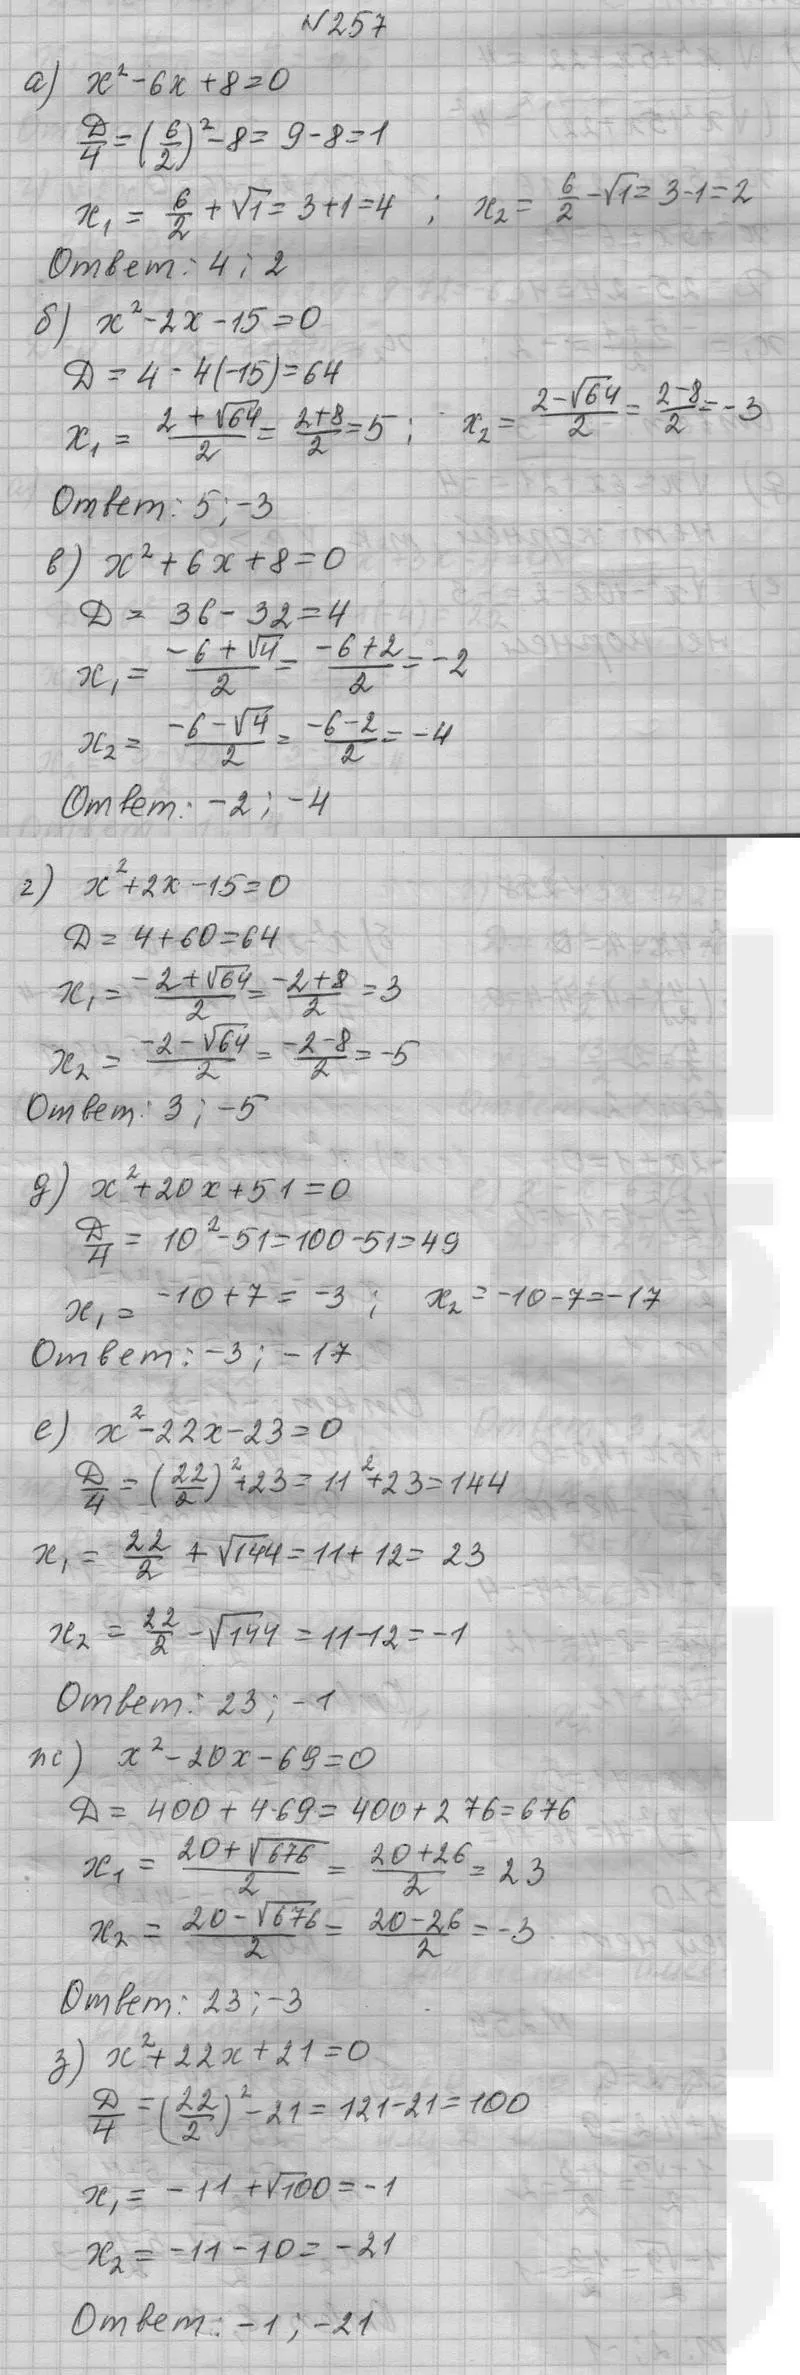 №257
а) x² - 6x + 8 = 0
D/4 = (6/2)² - 8 = 9 - 8 = 1
x₁ = 6/2 + √1 = 3 + 1 = 4 ; x₂ = 6/2 - √1 = 3 - 1 = 2
Ответ: 4 ; 2
б) x² - 2x - 15 = 0
D = 4 - 4(-15) = 64
x₁ = (2 + √64)/2 = (2+8)/2 = 5 ; x₂ = (2 - √64)/2 = (2-8)/2 = -3
Ответ: 5 ; -3
в) x² + 6x + 8 = 0
D = 36 - 32 = 4
x₁ = (-6 + √4)/2 = (-6+2)/2 = -2
x₂ = (-6 - √4)/2 = (-6-2)/2 = -4
Ответ: -2 ; -4
г) x² + 2x - 15 = 0
D = 4 + 60 = 64
x₁ = (-2 + √64)/2 = (-2+8)/2 = 3
x₂ = (-2 - √64)/2 = (-2-8)/2 = -5
Ответ: 3 ; -5
д) x² + 20x + 51 = 0
D/4 = 10² - 51 = 100 - 51 = 49
x₁ = -10 + 7 = -3 ; x₂ = -10 - 7 = -17
Ответ: -3 ; -17
е) x² - 22x - 23 = 0
D/4 = (22/2)² + 23 = 11² + 23 = 144
x₁ = 22/2 + √144 = 11 + 12 = 23
x₂ = 22/2 - √144 = 11 - 12 = -1
Ответ: 23 ; -1
ж) x² - 20x - 69 = 0
D = 400 + 4·69 = 400 + 276 = 676
x₁ = (20 + √676)/2 = (20+26)/2 = 23
x₂ = (20 - √676)/2 = (20-26)/2 = -3
Ответ: 23 ; -3
з) x² + 22x + 21 = 0
D/4 = (22/2)² - 21 = 121 - 21 = 100
x₁ = -11 + √100 = -1
x₂ = -11 - 10 = -21
Ответ: -1 ; -21